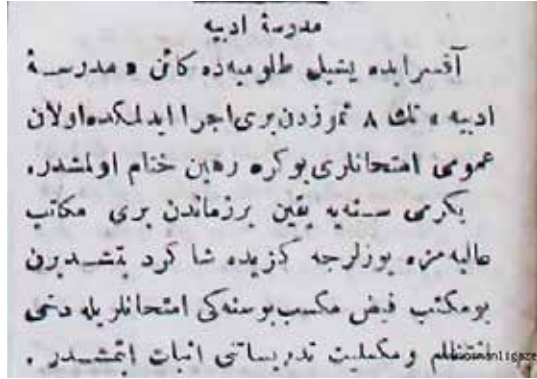 مدرسۀ ادبیه
آقسرایده یشیل طلومبه‌ده کائن « مدرســۀ
ادبیه » نك ٨ تموزدن بری اجرا ایدلمکده اولان
عمومی امتحانلری بو کره رهین ختام اولمشدر.
یکرمی ســنه‌یه یقین برزماندن بری مکاتب
عالیه‌مزه یوزلرجه کزیده شا کرد یتشــدیرن
بو مکتب فیض مکسب بو سنه‌کی امتحانلریله دخی
انتظام و مکملیت تدریساتنی اثبات ایتمشــدر .